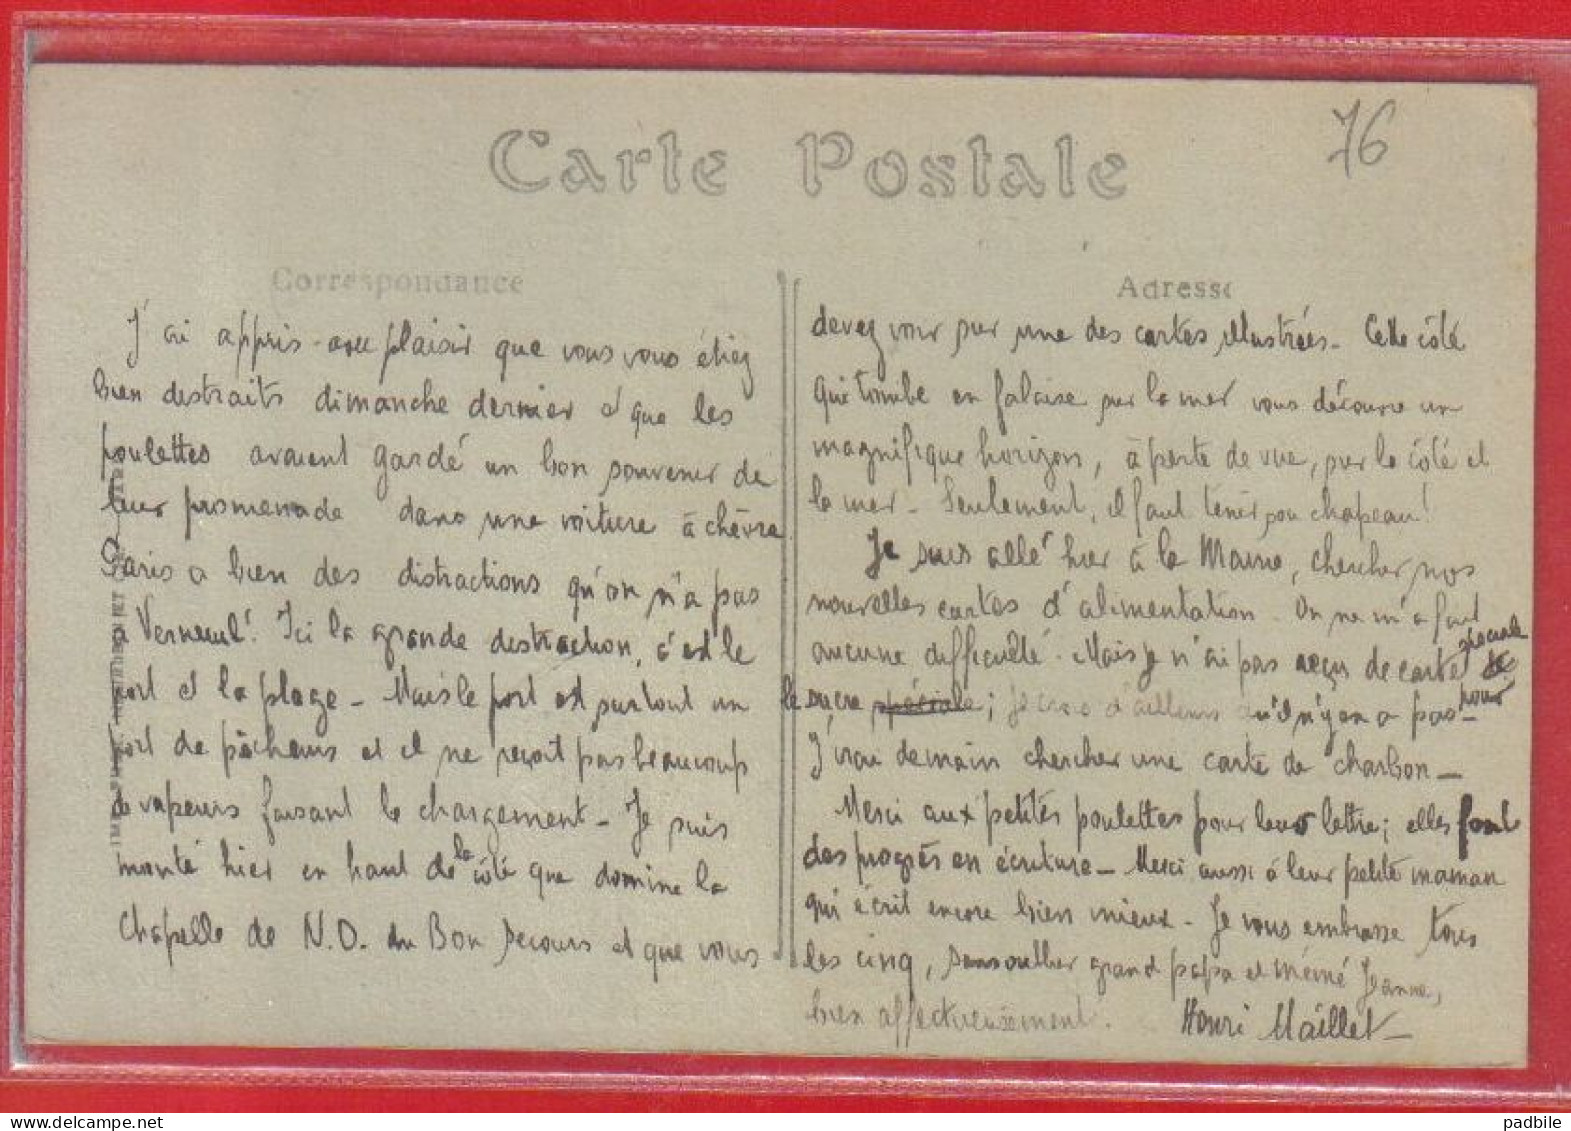 76
Carte Postale
Correspondance
J'ai appris avec plaisir que vous vous étiez
bien destraits dimanche dernier et que les
poulettes avaient gardé un bon souvenir de
leur promenade dans une voiture à chèvre
Paris a bien des distractions qu'on n'a pas
à Verneuil! Ici la grande destraction, c'est le
port et la plage - Mais le port est surtout un
port de pêcheurs et il ne reçoit pas beaucoup
de vapeurs faisant le chargement - Je suis
monté hier en haut de la côté que domine la
Chapelle de N.D. du Bon Secours et que vous
Adresse
devez voir sur une des cartes illustrées - Cette côté
qui tombe en falaise sur la mer vous découvre un
magnifique horizon, à perte de vue, sur la côté et
la mer - Seulement, il faut tenir son chapeau!
Je suis allé hier à la Mairie, chercher nos
nouvelles cartes d'alimentation. On ne m'a fait
aucune difficulté. Mais je n'ai pas reçu de carte spéciale pour
le sucre spéciale; je crois d'ailleurs qu'il n'y en a pas -
J'irai demain chercher une carte de charbon -
Merci aux petites poulettes pour leur lettre; elles font
des progrès en écriture - Merci aussi à leur petite maman
qui écrit encore bien mieux - Je vous embrasse tous
les cinq, sans oublier grand papa et mémé Jeanne,
bien affectueusement. Henri Maillet -
padbile